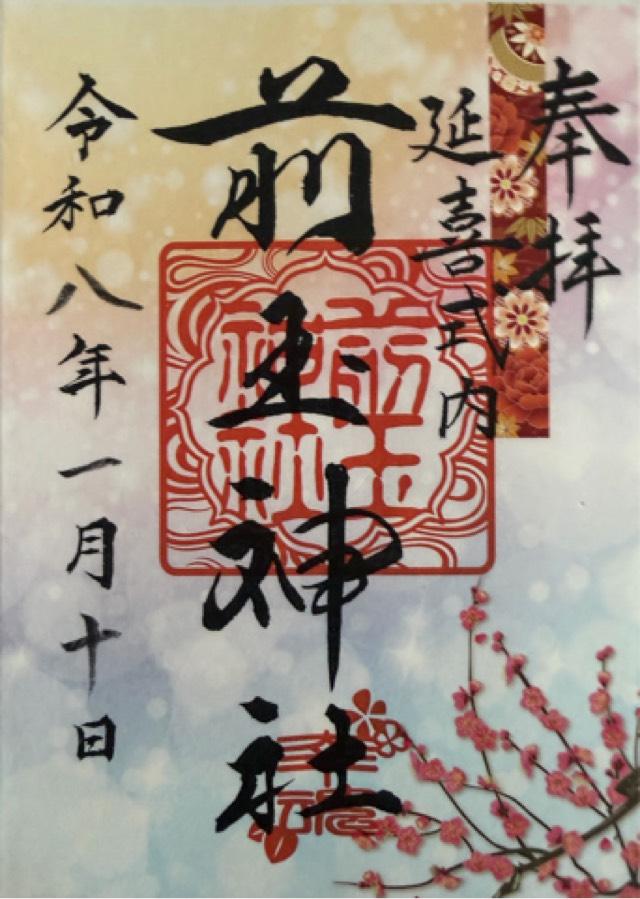 奉拝
延喜式内
前玉神社
前玉神社
令和八年一月十日